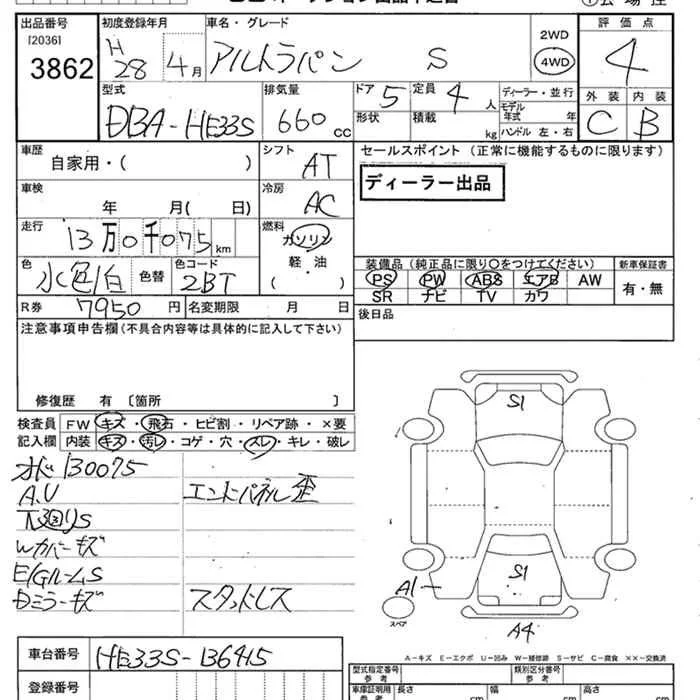 出品番号 初度登録年月 車名・グレード 評価点
[2036]
3862 H28年4月 アルトラパン S 2WD 4WD 4
外装 内装
C B
型式 排気量 ドア 定員 ディーラー・並行
DBA-HE33S 660cc 5 4人 モデル年式 年
形状 積載 kg ハンドル 左・右
車歴 シフト セールスポイント (正常に機能するものに限ります)
自家用・( ) AT
ディーラー出品
車検 冷房
年 月( 日) AC
走行 燃料
13万0千075km ガソリン
軽・油
( )
色 色替 色コード 装備品(純正品に限り○をつけてください) 新車保証書
水色/白 2BT PS PW ABS エアB AW 有・無
SR ナビ TV カワ
R券 7950円 名変期限 月 日 後日品
注意事項申告欄(不具合内容等は具体的に記入して下さい)
修復歴 有 〔箇所 〕
検査員 FW キズ・飛石・ヒビ割・リペア跡・×要
記入欄 内装 キズ・汚レ・コゲ・穴・スレ・キレ・破レ
オド130075
A.U エンドパネル歪
下廻りS
Wカバーキズ
E/GルームS
Dミラーキズ スタッドレス
S1
S1
A1
スペア
A4
A-キズ E-エクボ U-凹み W-補修跡 S-サビ C-腐食 ××-交換済
車台番号 HE33S-136415
型式指定番号 参考 類別区分番号 参考
登録番号 車庫証明用 参考 長さ cm 幅 cm 高さ cm